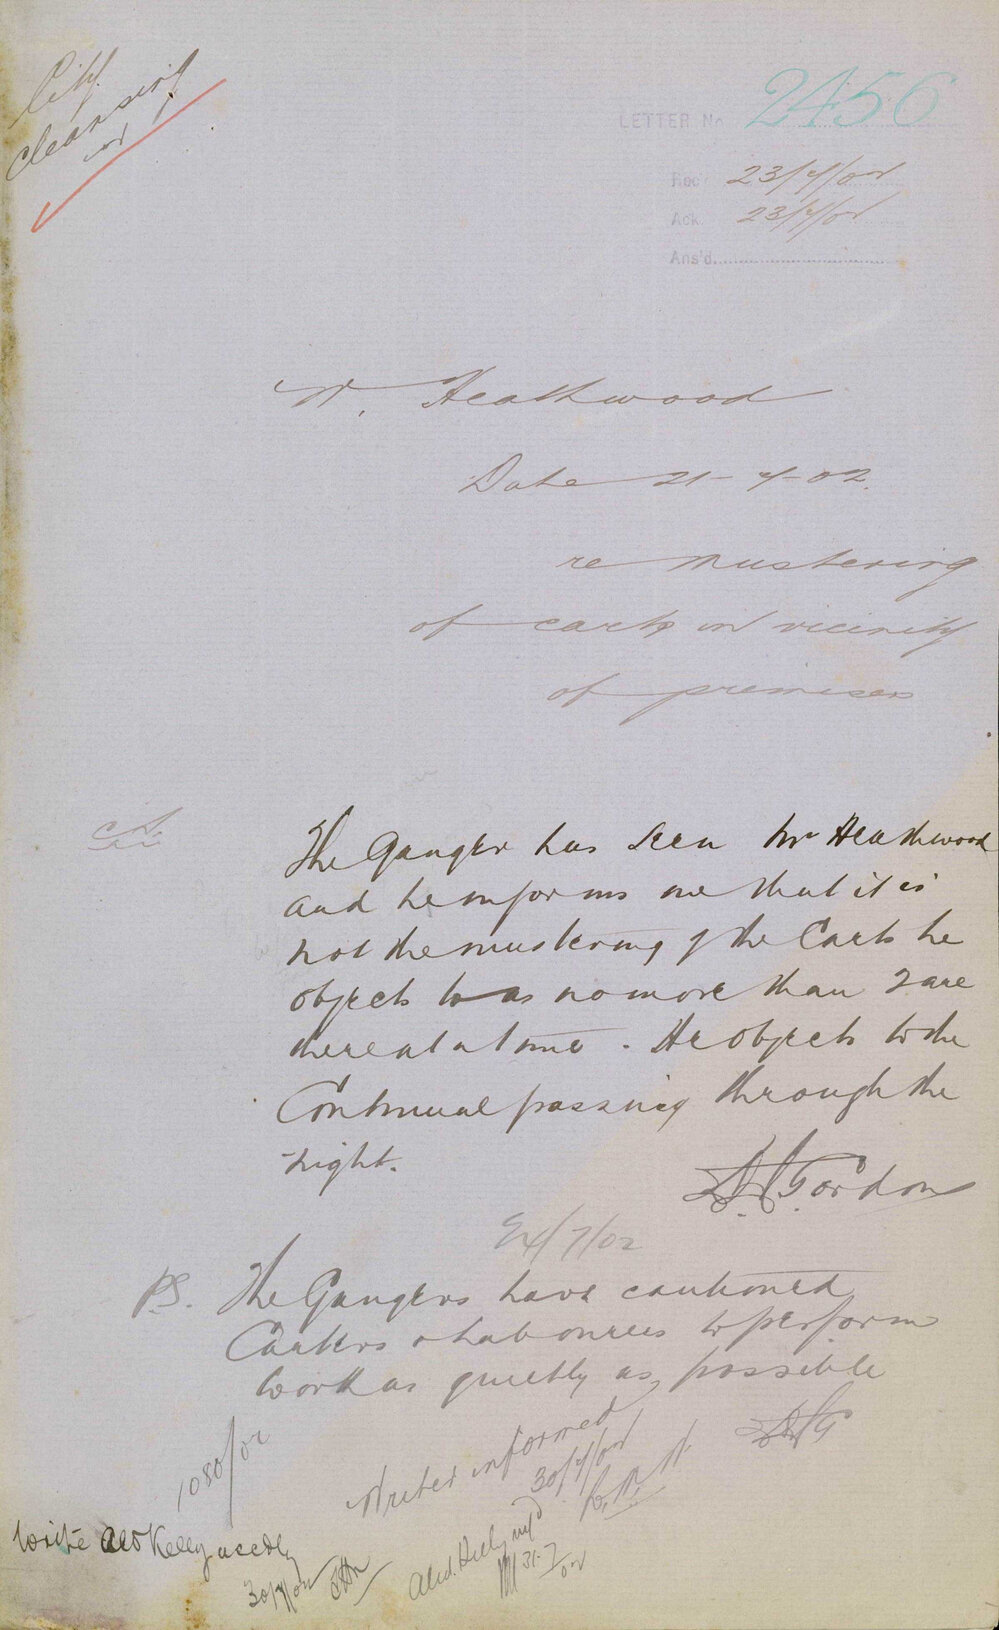 City
Cleansing
LETTER No 2456
Rec 23/7/02
Ack. 23/7/02
Ans'd.
W. Heathwood
Date 21-7-02.
re mustering
of carts in vicinity
of premises
The Ganger has seen Mr Heathwood
and he informs me that it is
not the mustering of the Carts he
objects to as no more than 2 are
there at a time. He objects to the
Continual passing through the
night.
Gordon
24/7/02
P.S. The Gangers have cautioned
Carters & Labourers to perform
Work as quietly as possible
Writer informed
30/7/02
1080/02
Write Ald Kelly accdly
30/7/02
Ald. Kelly infd
31.7.02